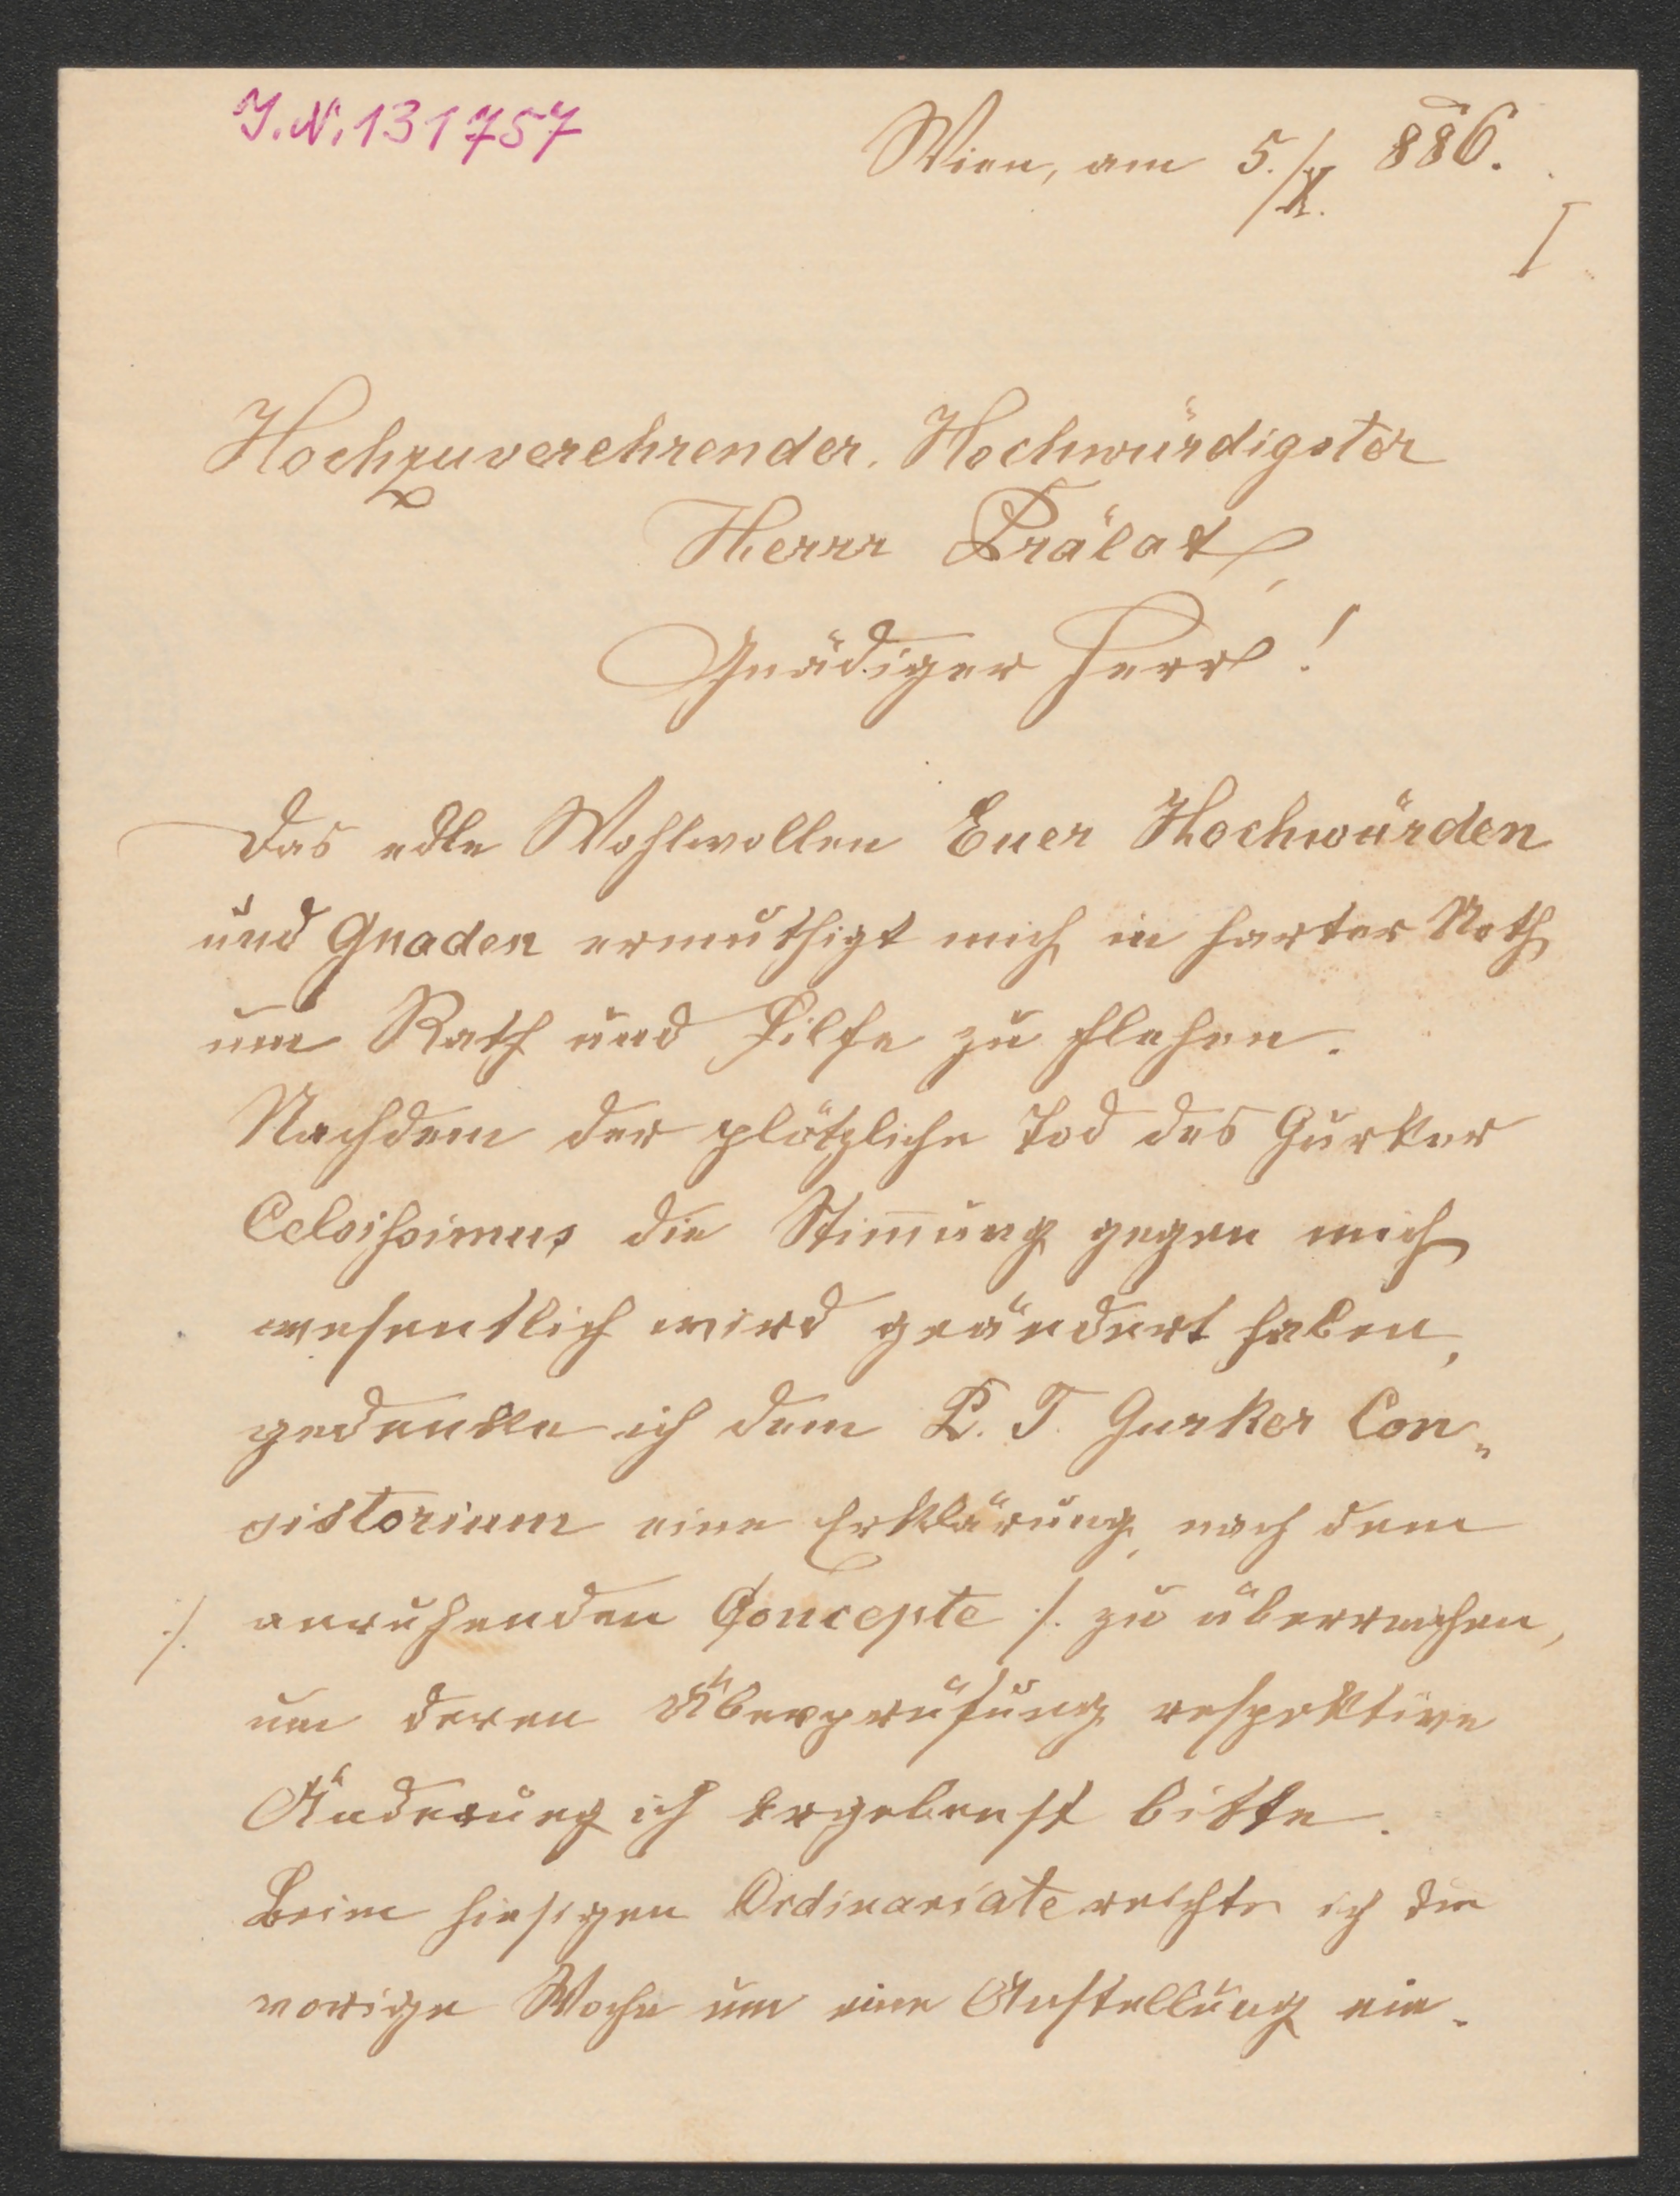 I.N. 131757
Wien, am 5./X. 886.
I
Hochzuverehrender, Hochwürdigster
Herrr Prälat,
Gnädiger Herr!
Das edle Wohlwollen Euer Hochwürden
und Gnaden ermuthigt mich in harter Noth
um Rath und Hilfe zu flehen.
Nachdem der plötzliche Tod des Gurker
Celsissimus die Stim̄ung gegen mich
wesentlich wird geändert haben,
gedenke ich dem P. T. Gurker Con„
sistorium eine Erklärung, nach dem
./. anruhenden Concepte ./. zu überreichen,
um deren Überprüfung respektive
Änderung ich ergebenst bitte.
Beim hiesigen Ordinariate reichte ich die
vorige Woche um eine Anstellung ein.